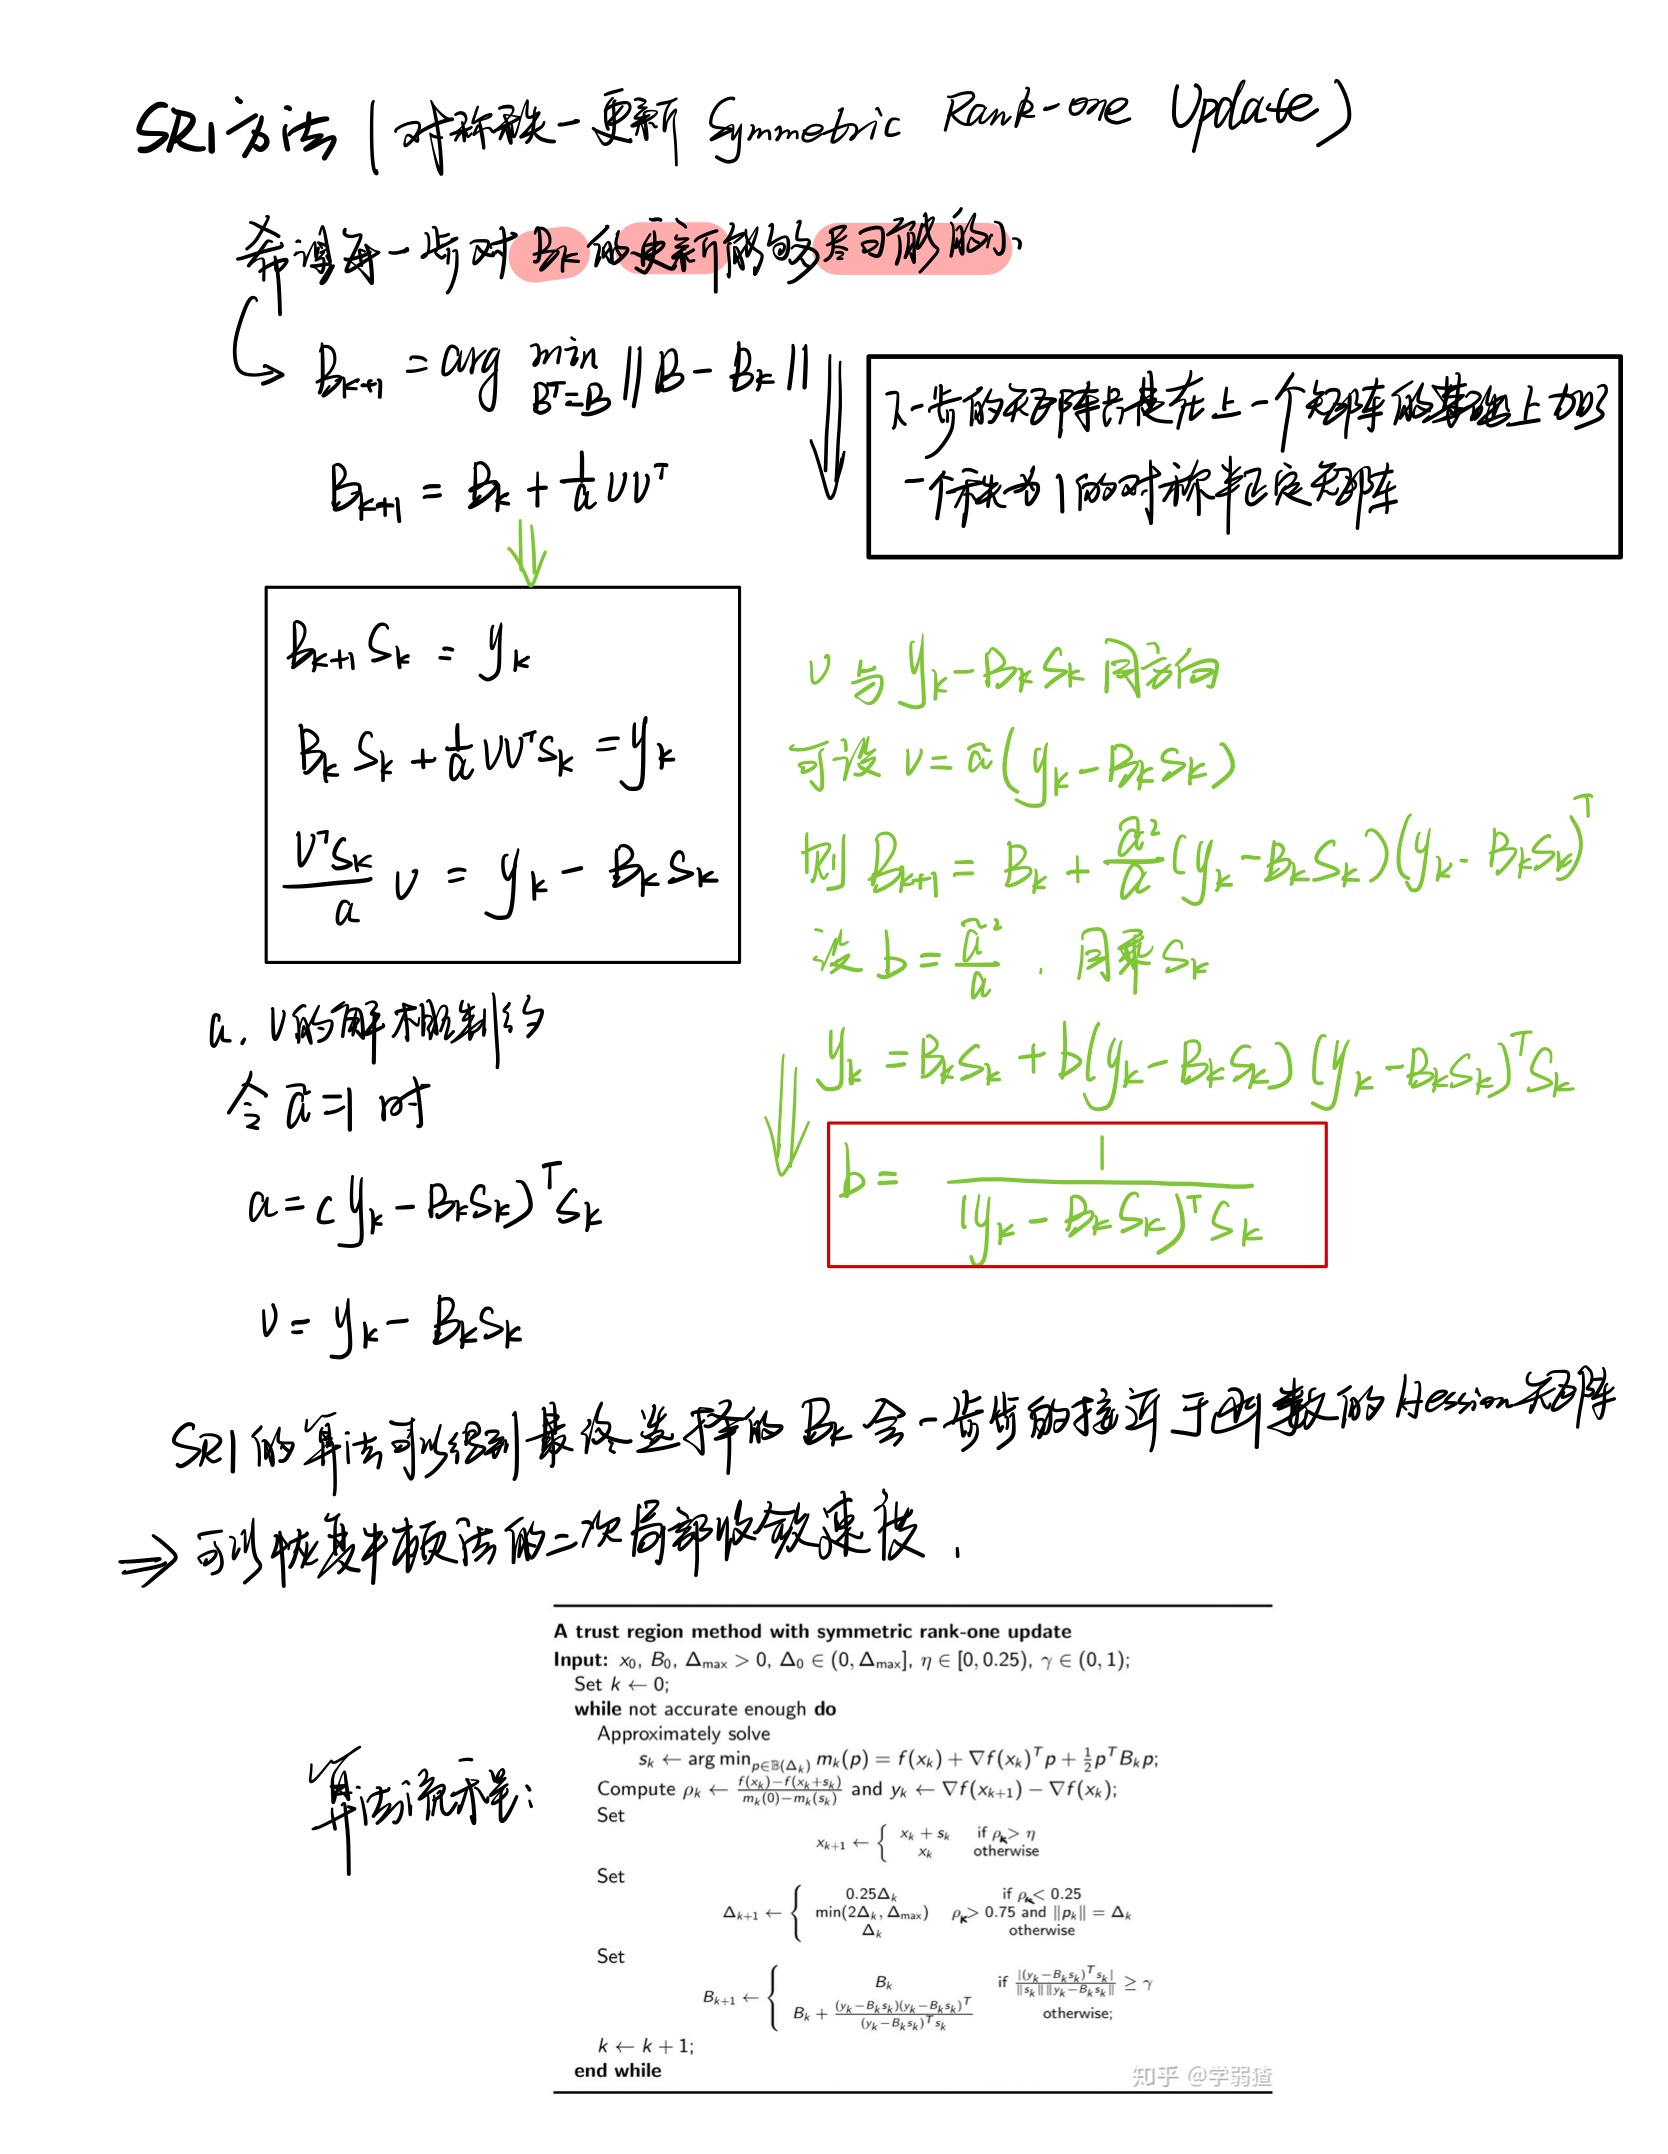 SR1方法 (对称秩一更新 Symmetric Rank-one Update)
希望每一步对Bk的更新能够尽可能的小
B_{k+1} = arg min_{B^T=B} ||B - B_k||
B_{k+1} = B_k + 1/a vv^T
下一步的矩阵只是在上一个矩阵的基础上加了
一个秩为1的对称半正定矩阵
B_{k+1} S_k = y_k
B_k S_k + 1/a vv^T s_k = y_k
(v^T s_k / a) v = y_k - B_k s_k
v与 y_k - B_k s_k 同方向
可设 v = ã(y_k - B_k s_k)
则 B_{k+1} = B_k + ã²/a (y_k - B_k s_k)(y_k - B_k s_k)^T
设 b = ã²/a , 同乘 s_k
y_k = B_k s_k + b(y_k - B_k s_k)(y_k - B_k s_k)^T s_k
b = 1 / ((y_k - B_k s_k)^T s_k)
a, v的解相互制约
令 ã=1 时
a = (y_k - B_k s_k)^T s_k
v = y_k - B_k s_k
SR1的算法可以得到最终选择的Bk会一步步的接近于函数的Hession矩阵
⇒ 可以恢复牛顿法的二次局部收敛速度.
算法流程:
A trust region method with symmetric rank-one update
Input: x_0, B_0, Δ_max > 0, Δ_0 ∈ (0, Δ_max], η ∈ [0, 0.25), γ ∈ (0, 1);
Set k ← 0;
while not accurate enough do
Approximately solve
s_k ← arg min_{p∈𝔹(Δ_k)} m_k(p) = f(x_k) + ∇f(x_k)^T p + ½ p^T B_k p;
Compute ρ_k ← (f(x_k)−f(x_k+s_k))/(m_k(0)−m_k(s_k)) and y_k ← ∇f(x_{k+1}) − ∇f(x_k);
Set
x_{k+1} ← { x_k + s_k if ρ_k > η
x_k otherwise
Set
Δ_{k+1} ← { 0.25Δ_k if ρ_k < 0.25
min(2Δ_k, Δ_max) ρ_k > 0.75 and ||p_k|| = Δ_k
Δ_k otherwise
Set
B_{k+1} ← { B_k if |(y_k−B_k s_k)^T s_k| / (||s_k|| ||y_k−B_k s_k||) ≥ γ
B_k + (y_k−B_k s_k)(y_k−B_k s_k)^T / ((y_k−B_k s_k)^T s_k) otherwise;
k ← k + 1;
end while
知乎 @学弱猹